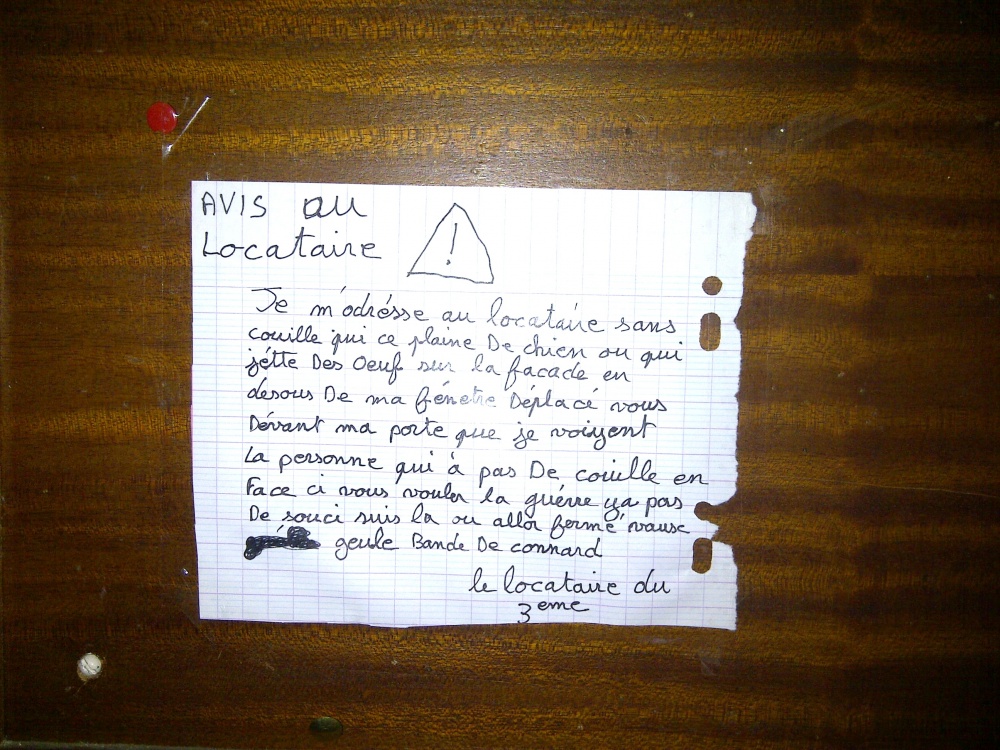 AVIS au
Locataire
!
Je m'adrésse au locataire sans
couille qui ce plaine De chien ou qui
jétte Des Oeuf sur la facade en
desous De ma fénetre Déplacé vous
Dévant ma porte que je voiyent
La personne qui à pas De couille en
Face ci vous vouler la guérre ya pas
De souci suis la ou allor fermé vausc
geule Bande De connard
le locataire du
3eme